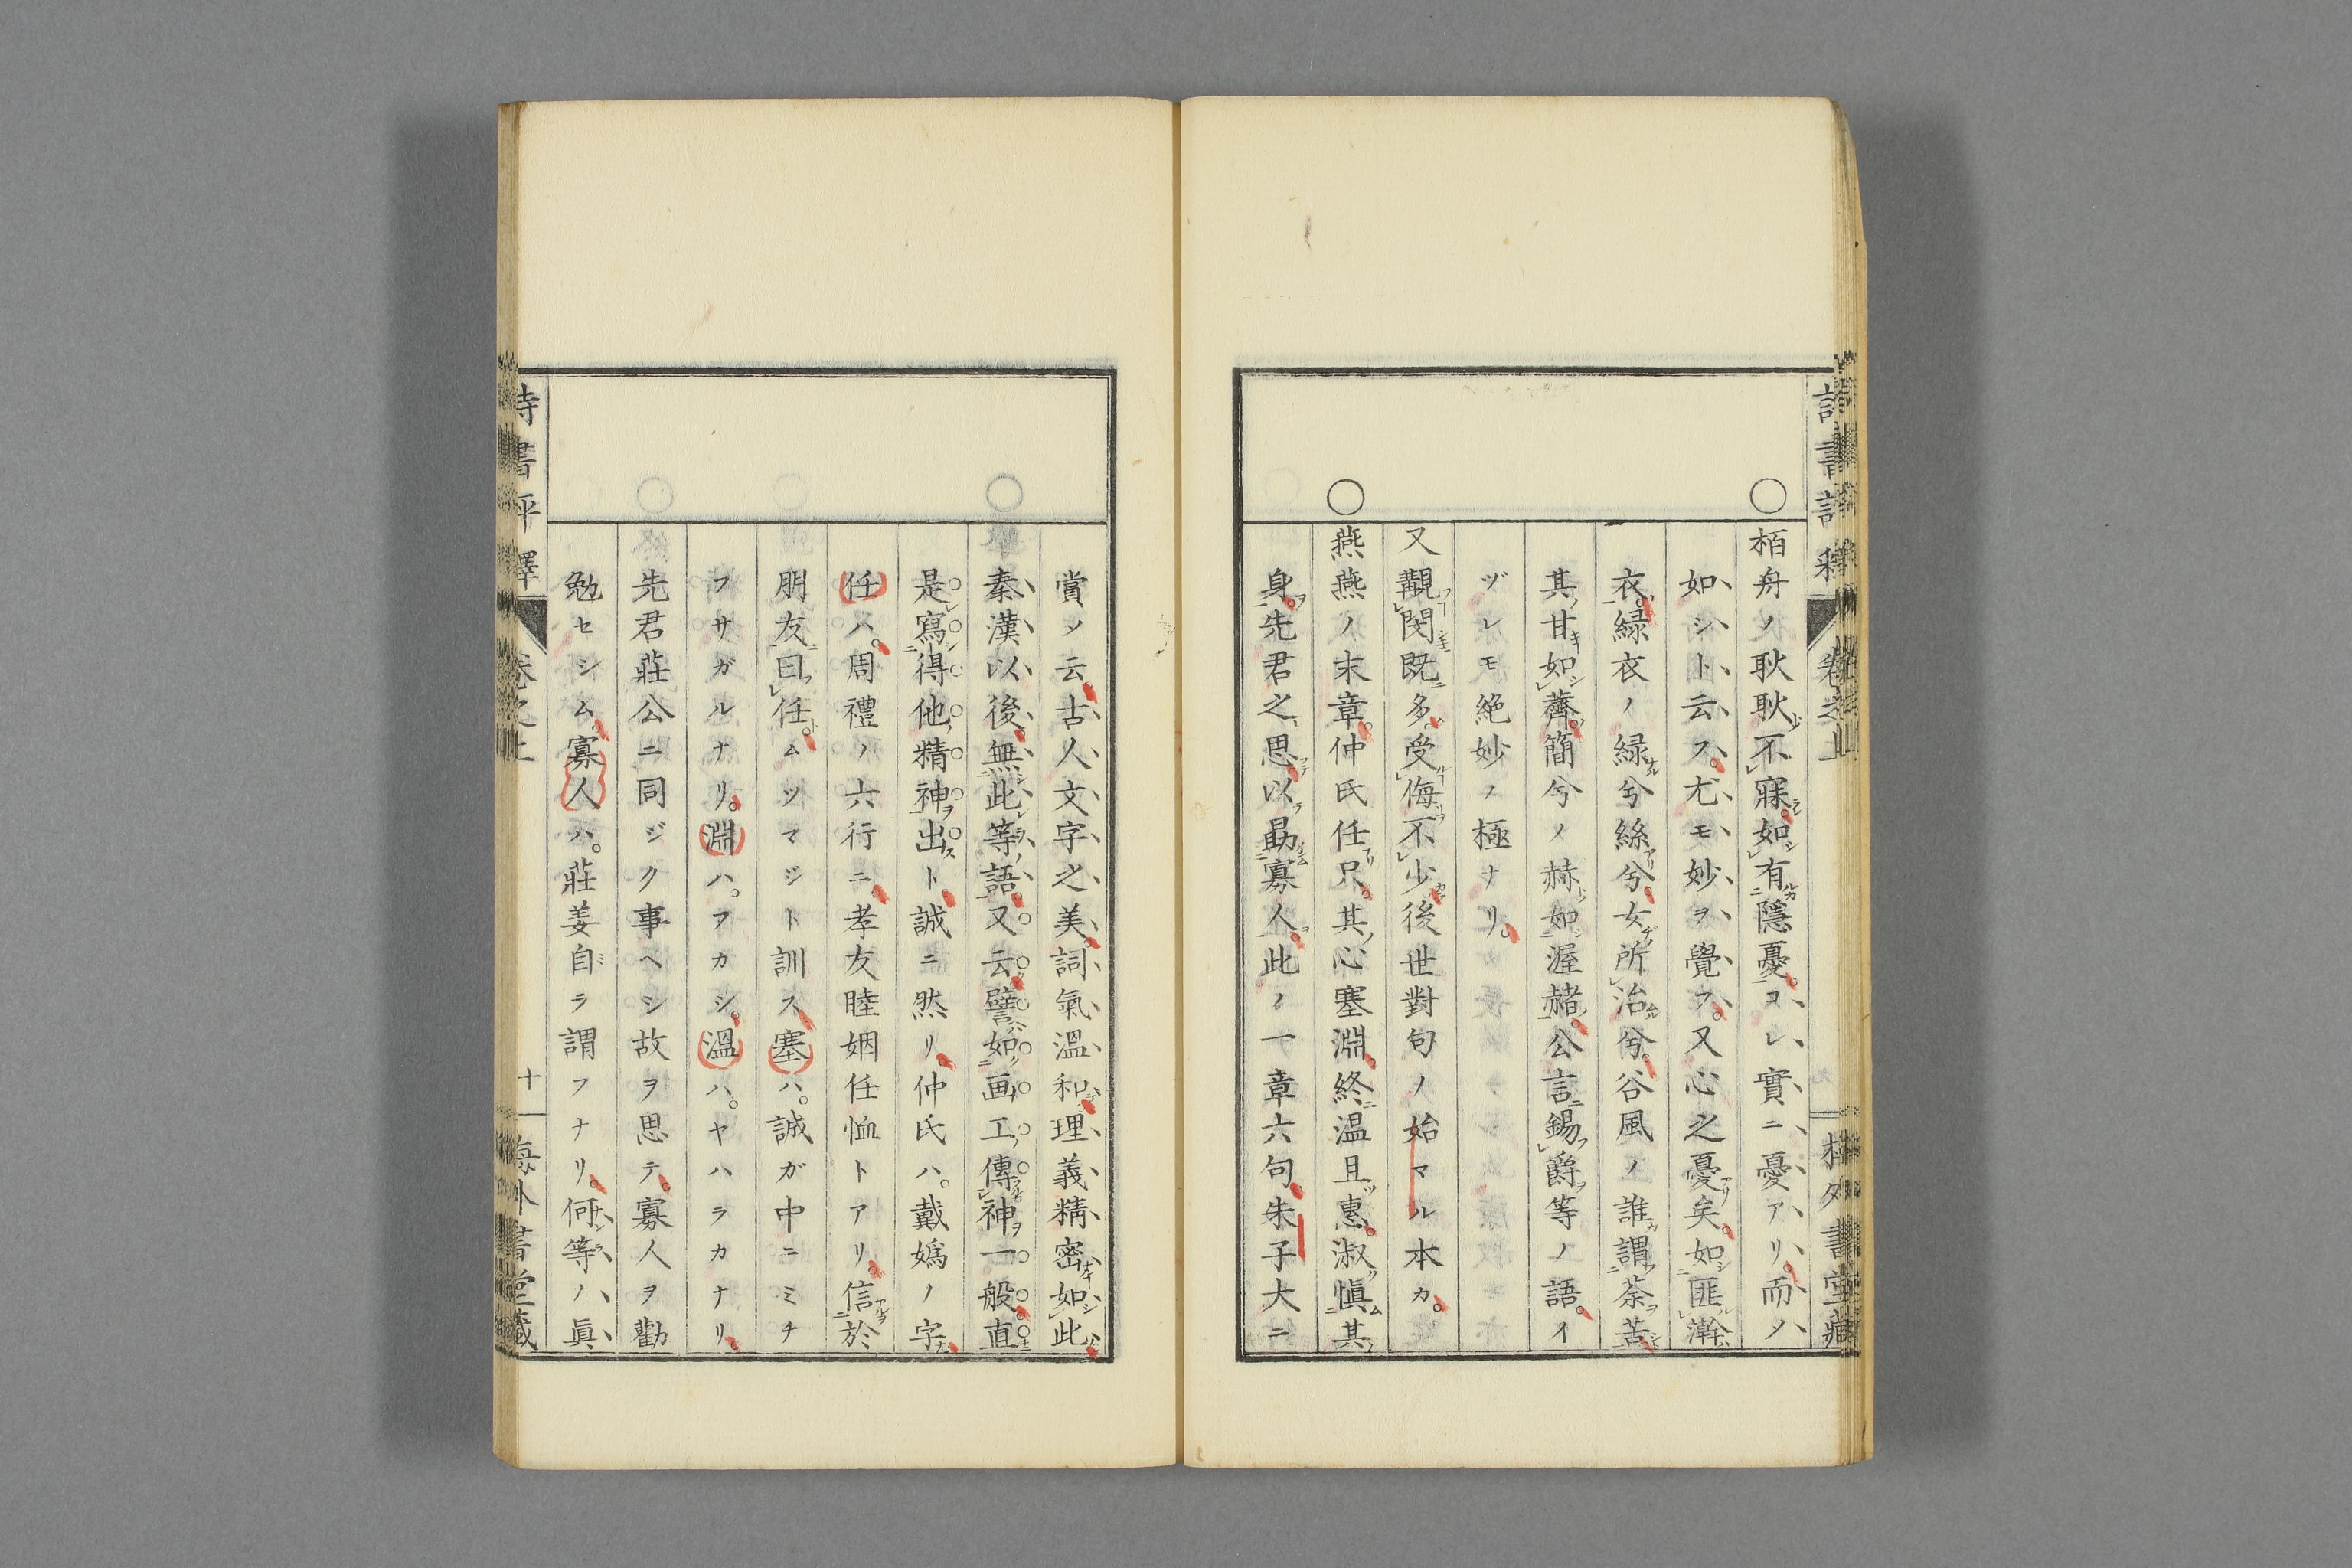 詩書評釋 卷之上 梅外書堂藏
○栢舟ノ耿耿不寐如有隱憂コレ實ニ憂アリ而メ
如シト云フ尤モ妙ヲ覺フ又心之憂矣如匪澣
衣緑衣ノ緑兮絲兮女所治兮谷風ノ誰謂荼苦
其甘如薺簡兮ノ赫如渥赭公言錫爵等ノ語イ
ヅレモ絶妙ノ極ナリ
又覯閔既多受侮不少後世對句ノ始マル本カ
○燕燕ノ末章仲氏任只其心塞淵終温且惠淑愼其
身先君之思以勗寡人此ノ一章六句朱子大ニ
賞ソ云古人文字之美詞氣溫和理義精密如此
秦漢以後無此等語又云譬如画工傳神一般直
是寫得他精神出ト誠ニ然リ仲氏ハ戴嬀ノ字
任ハ周禮ノ六行ニ孝友睦姻任恤トアリ信於
朋友曰任ムツマジト訓ス塞ハ誠ガ中ニミチ
フサガルナリ淵ハフカシ溫ハヤハラカナリ
先君莊公ニ同ジク事ヘシ故ヲ思テ寡人ヲ勸
勉セシム寡人ハ莊姜自ラ謂フナリ何等ノ眞
詩書評釋 卷之上 十 梅外書堂藏